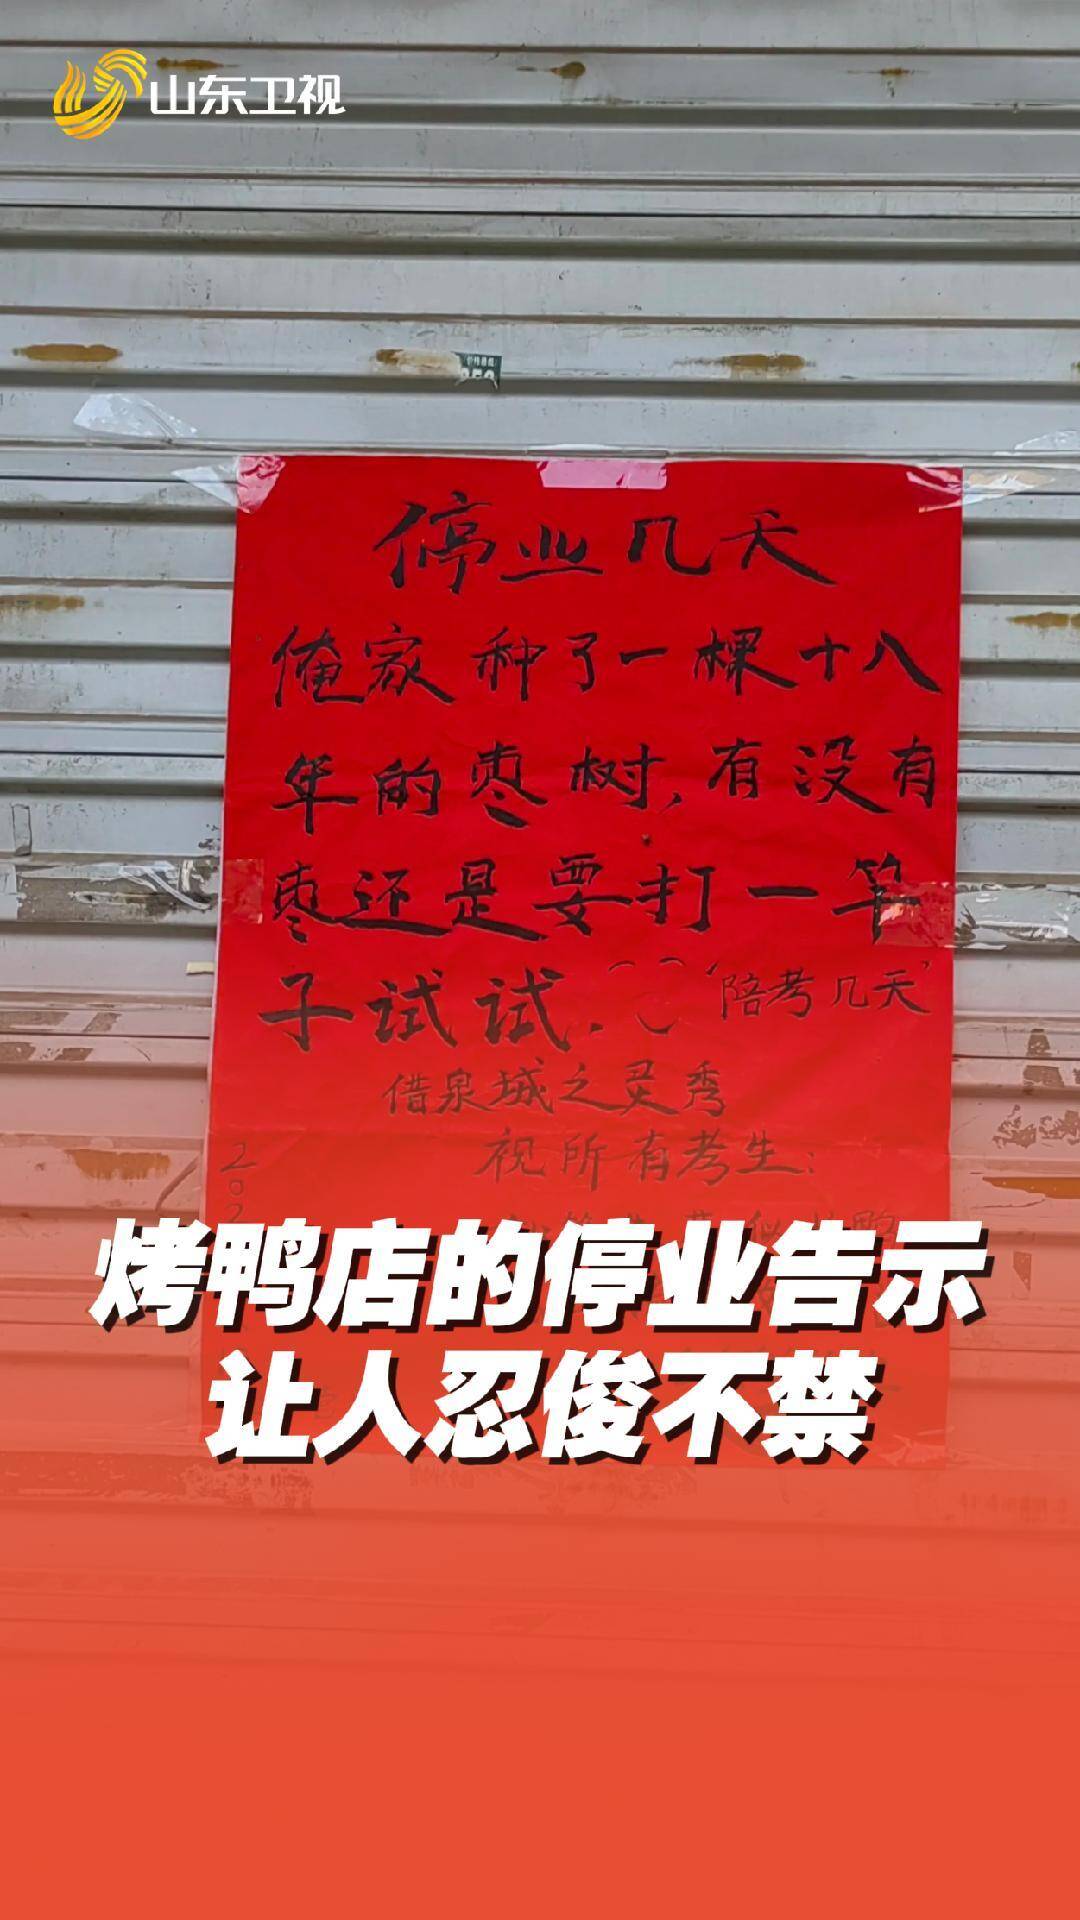 山东卫视
停业几天
俺家种了一棵十八
年的枣树，有没有
枣还是要打一竿
子试试.
"陪考几天"
借泉城之灵秀
祝所有考生：
烤鸭店的停业告示
让人忍俊不禁